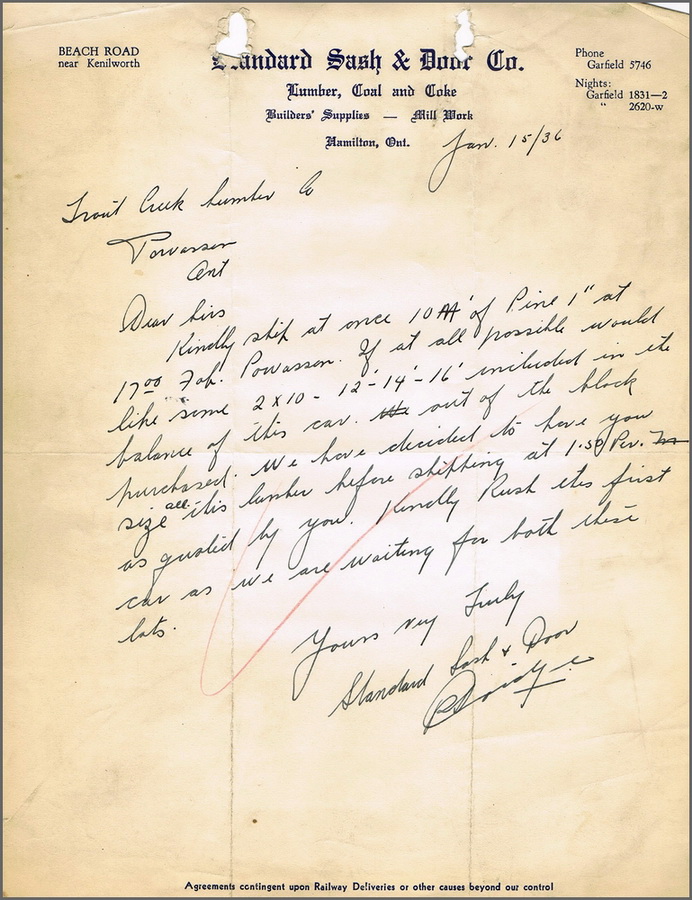 BEACH ROAD
near Kenilworth
Standard Sash & Door Co.
Lumber, Coal and Coke
Builders' Supplies — Mill Work
Hamilton, Ont.
Phone
Garfield 5746
Nights:
Garfield 1831—2
" 2620-w
Jan. 15/36
Trout Creek Lumber Co
Powassan
Ont
Dear Sirs
Kindly ship at once 10 M' of Pine 1" at
17.00 Fob. Powassan. If at all possible would
like some 2x10 - 12'-14'-16' included in the
balance of this car. out of the block
purchased. We have decided to have you
size all this lumber before shipping at 1.50 Per. M
as quoted by you. Kindly Rush this first
car as we are waiting for both these
lots.
Yours very Truly
Standard Sash & Door
Agreements contingent upon Railway Deliveries or other causes beyond our control